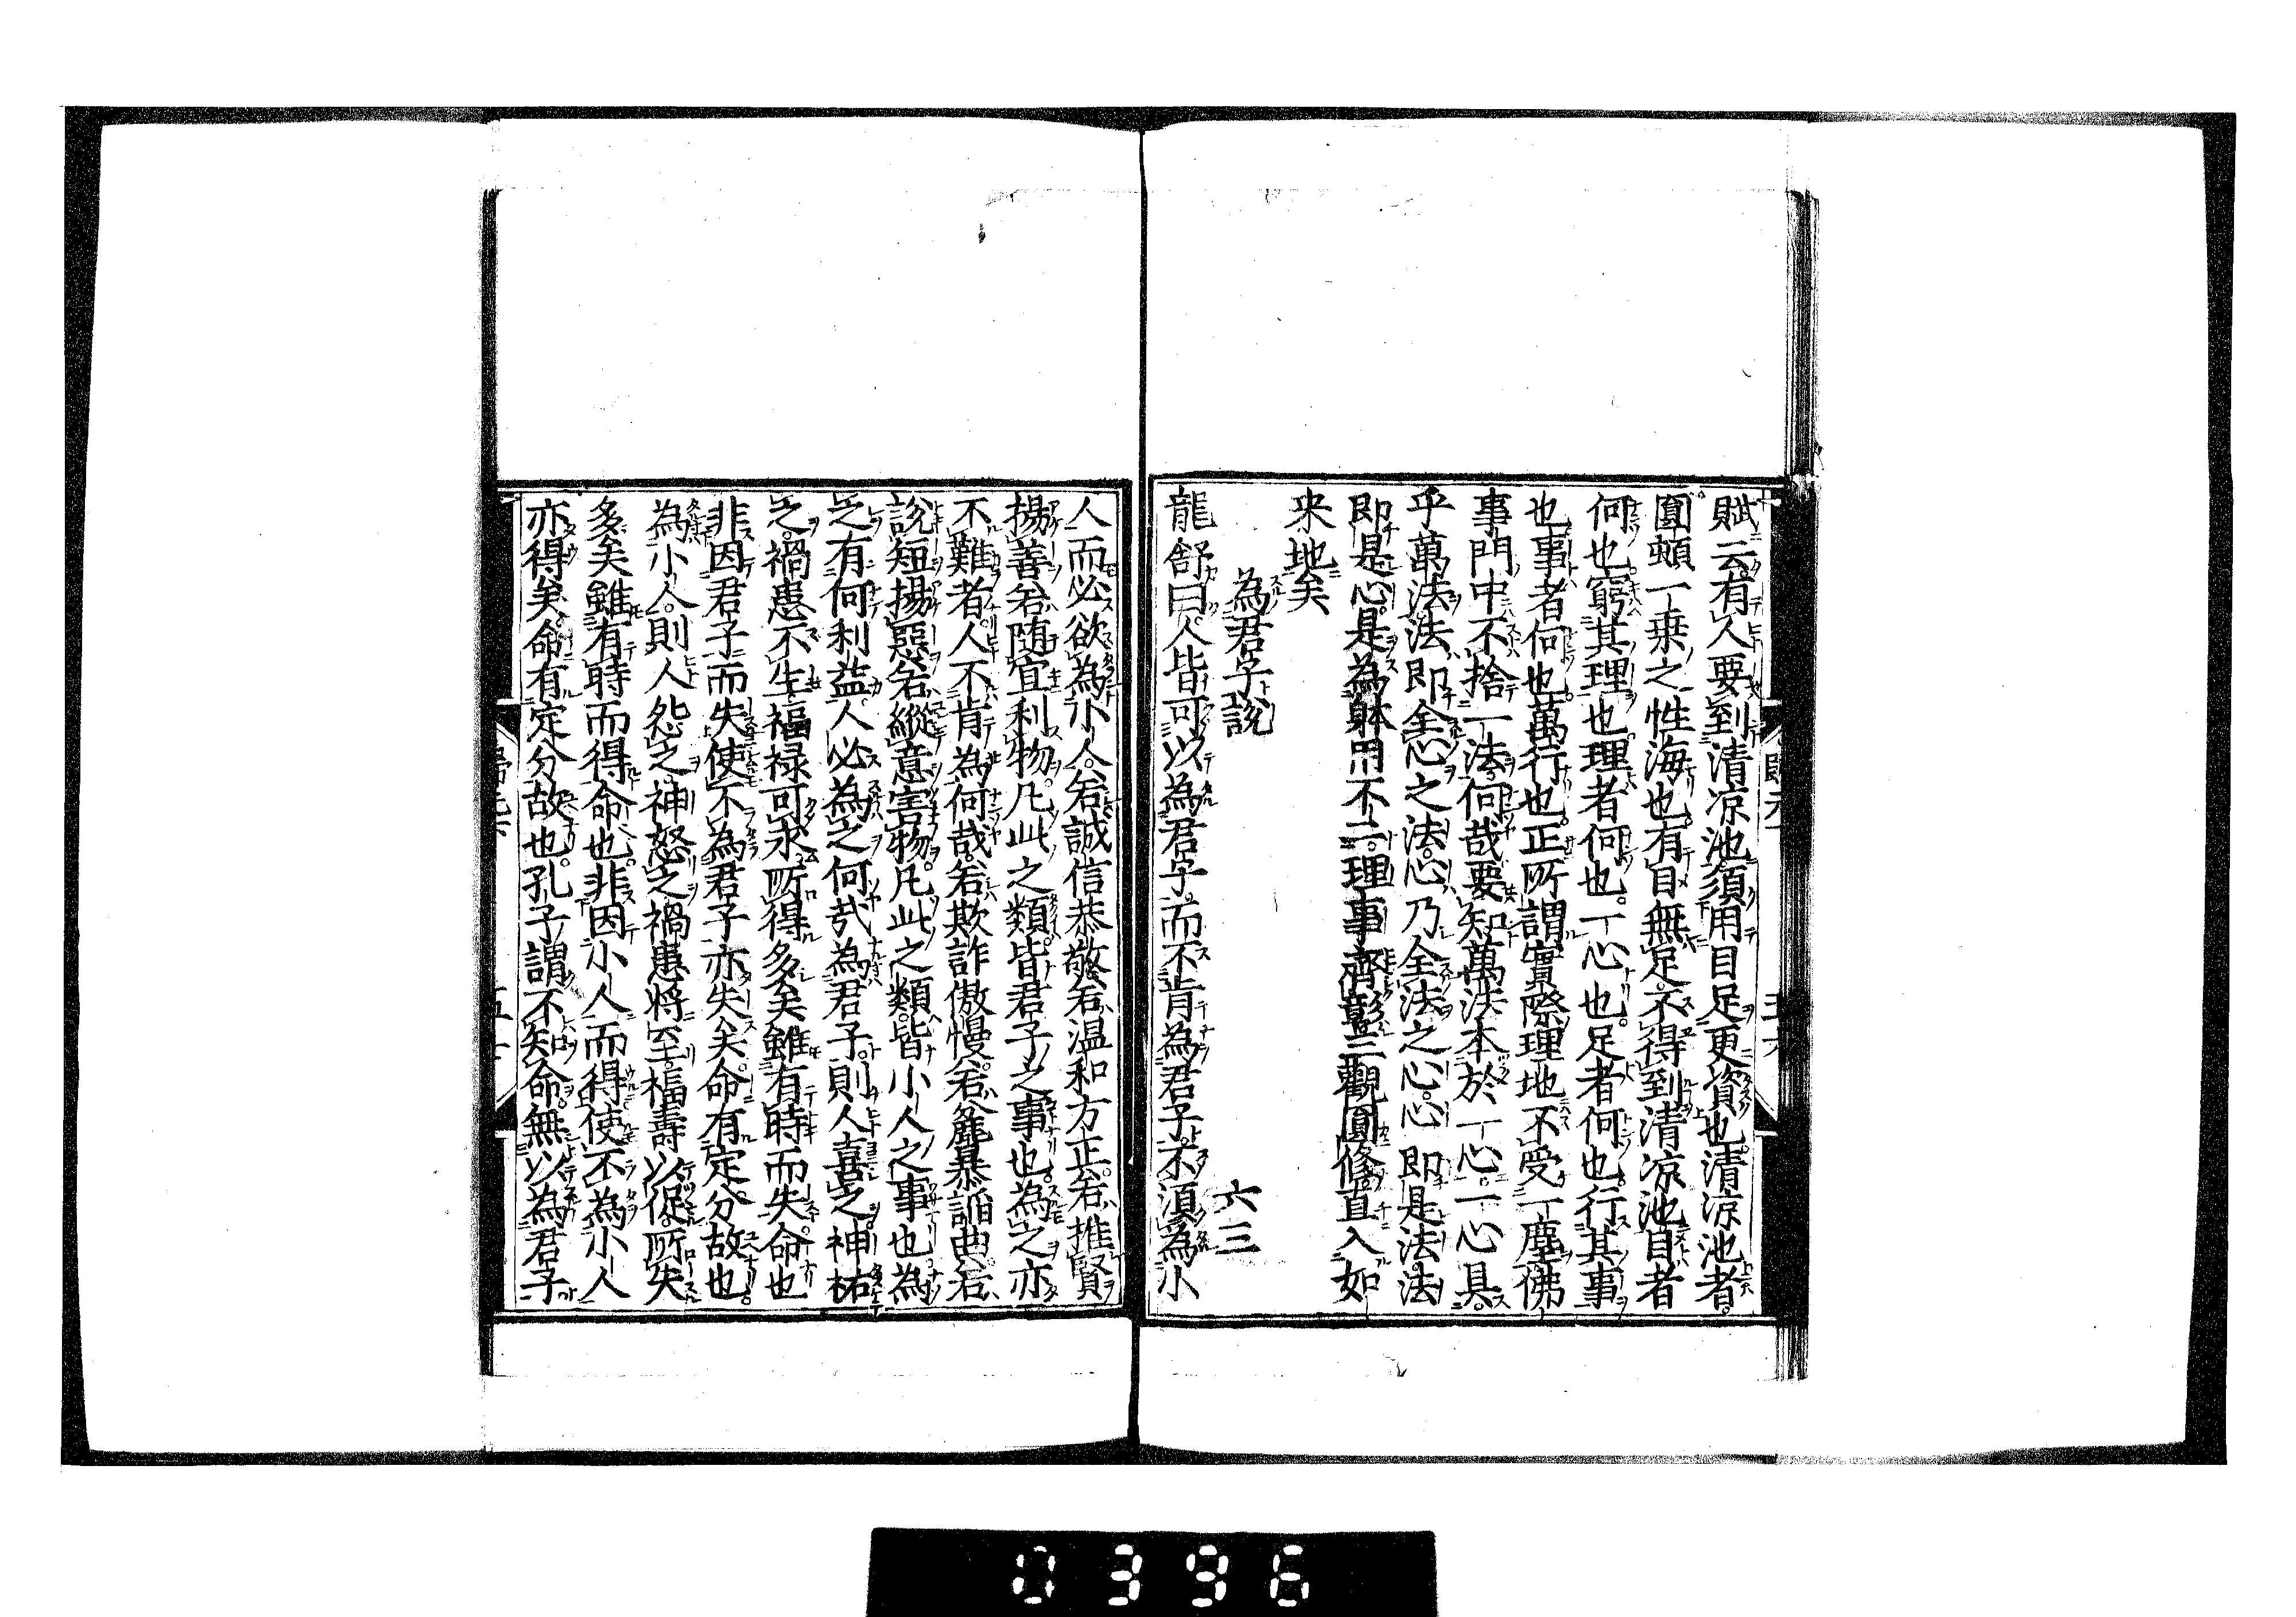 賦云有人要到清凉池須用目足更資也清凉池者
圓頓一乗之性海也有目無足不得到清凉池目者
何也窮其理也理者何也一心也足者何也行其事
也事者何也萬行也正所謂實際理地不受一塵佛
事門中不捨一法何哉要知萬法本於一心一心具
乎萬法法即全心之法心乃全法之心心即是法法
即是心是為躰用不二理事齊彰三觀圓脩直入如
来地矣
為君子說　六三
龍舒曰人皆可以為君子而不肯為君子不須為小
人而必欲為小人若誠信恭敬若温和方正若推賢
揚善若随宜利物凡此之類皆君子之事也為之亦
不難者人不肯為何哉若欺詐傲慢若麁暴謟曲若
說短揚惡若縱意害物凡此之類皆小人之事也為
之有何利益人必為之何㢤為君子則人喜之神祐
之禍患不生福禄可永所得多矣雖有時而失命也
非因君子而失使不為君子亦失矣命有定分故也
為小人則人怨之神怒之禍患將至福壽以促所失
多矣雖有時而得命也非因小人而得使不為小人
亦得矣命有定分故也孔子謂不知命無以為君子
0396